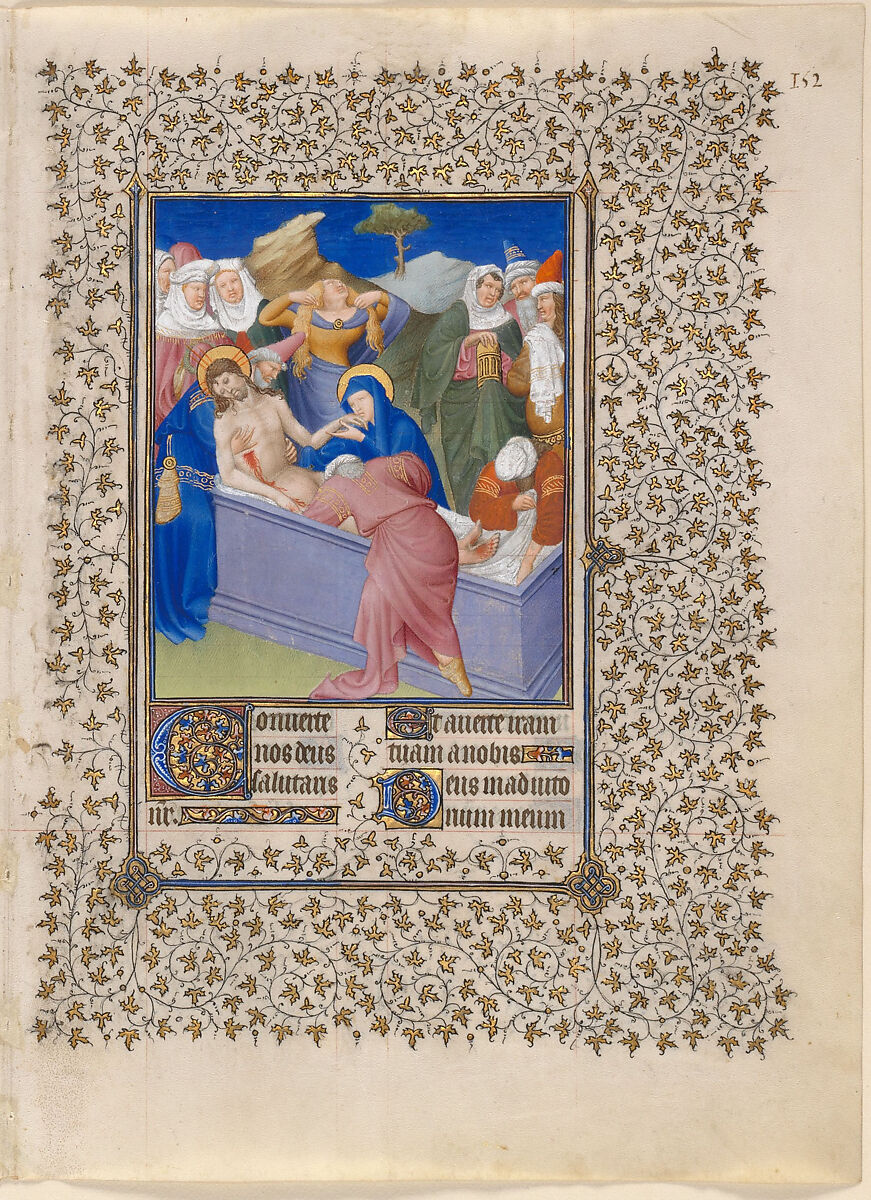 152
Conuerte
nos deus
salutaris
nr̄.
Et auerte iram
tuam a nobis
Deus in ad iuto
rium meum